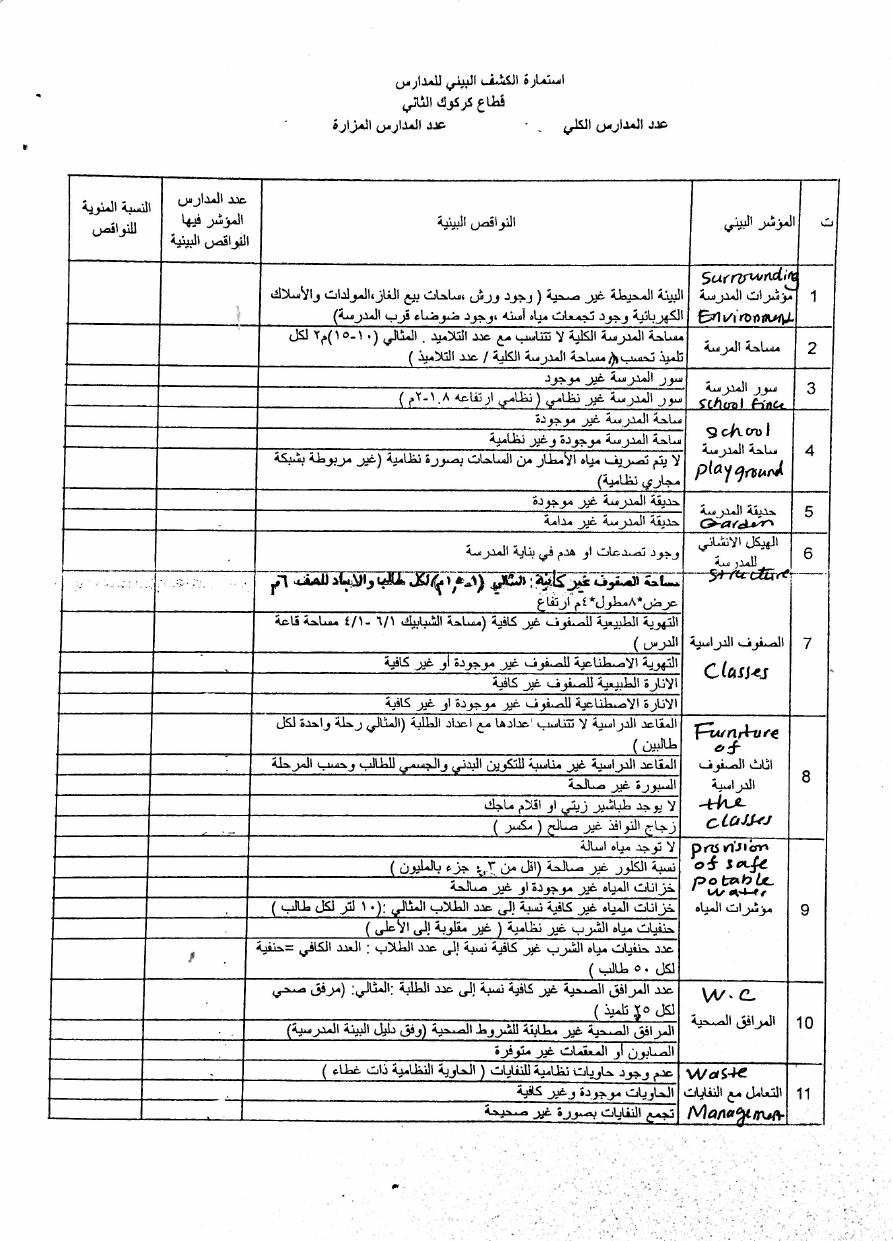 استمارة الكشف البيئي للمدارس
قطاع كركوك الثاني
عدد المدارس الكلي عدد المدارس المزارة
ت
المؤشر البيئي
النواقص البيئية
عدد المدارس
المؤشر فيها
النواقص البيئية
النسبة المئوية
للنواقص
1
Surrounding
مؤشرات المدرسة
Environment
البيئة المحيطة غير صحية ( وجود ورش ،ساحات بيع الغاز،المولدات والأسلاك
الكهربائية وجود تجمعات مياه أسنه ،وجود ضوضاء قرب المدرسة)
2
مساحة المرسة
مساحة المدرسة الكلية لا تتناسب مع عدد التلاميد . المثالي (١٠-١٥)م٢ لكل
تلميذ تحسب (مساحة المدرسة الكلية / عدد التلاميذ )
3
سور المدرسة
School Fince
سور المدرسة غير موجود
سور المدرسة غير نظامي ( نظامي ارتفاعه ١.٨-٢م )
4
School
ساحة المدرسة
playground
ساحة المدرسة غير موجودة
ساحة المدرسة موجودة وغير نظامية
لا يتم تصريف مياه الأمطار من الساحات بصورة نظامية (غير مربوطة بشبكة
مجاري نظامية)
5
حديقة المدرسة
Garden
حديقة المدرسة غير موجودة
حديقة المدرسة غير مدامة
6
الهيكل الانشائي
للمدرسة
Structure
وجود تصدعات او هدم في بناية المدرسة
7
الصفوف الدراسية
Classes
مساحة الصفوف غير كافية : المثالي لكل طالب والابعاد للصف ٦م
عرض*٨مطول*٤م ارتفاع
التهوية الطبيعية للصفوف غير كافية (مساحة الشبابيك ٦/١ -٤/١ مساحة قاعة
الدرس )
التهوية الاصطناعية للصفوف غير موجودة أو غير كافية
الانارة الطبيعية للصفوف غير كافية
الانارة الاصطناعية للصفوف غير موجودة او غير كافية
8
Furnture
of
اثاث الصفوف
الدراسية
the
classes
المقاعد الدراسية لا تتناسب اعدادها مع اعداد الطلبة (المثالي رحلة واحدة لكل
طالبين )
المقاعد الدراسية غير مناسبة للتكوين البدني والجسمي للطالب وحسب المرحلة
السبورة غير صالحة
لا يوجد طباشير زيتي او اقلام ماجك
زجاج النوافذ غير صالح ( مكسر )
9
provision
of safe
potable
water
مؤشرات المياه
لا توجد مياه اسالة
نسبة الكلور غير صالحة (اقل من جزء بالمليون )
خزانات المياه غير موجودة او غير صالحة
خزانات المياه غير كافية نسبة إلى عدد الطلاب المثالي :(١٠ لتر لكل طالب )
حنفيات مياه الشرب غير نظامية ( غير مقلوبة إلى الأعلى )
عدد حنفيات مياه الشرب غير كافية نسبة إلى عدد الطلاب : العدد الكافي =حنفية
لكل ٥٠ طالب )
10
W.C
المرافق الصحية
عدد المرافق الصحية غير كافية نسبة إلى عدد الطلبة :المثالي: (مرفق صحي
لكل ٢٥ تلميذ )
المرافق الصحية غير مطابقة للشروط الصحية (وفق دليل البيئة المدرسية)
الصابون أو المعقمات غير متوفرة
11
Waste
التعامل مع النفايات
Management
عدم وجود حاويات نظامية للنفايات ( الحاوية النظامية ذات غطاء )
الحاويات موجودة وغير كافية
تجمع النفايات بصورة غير صحيحة